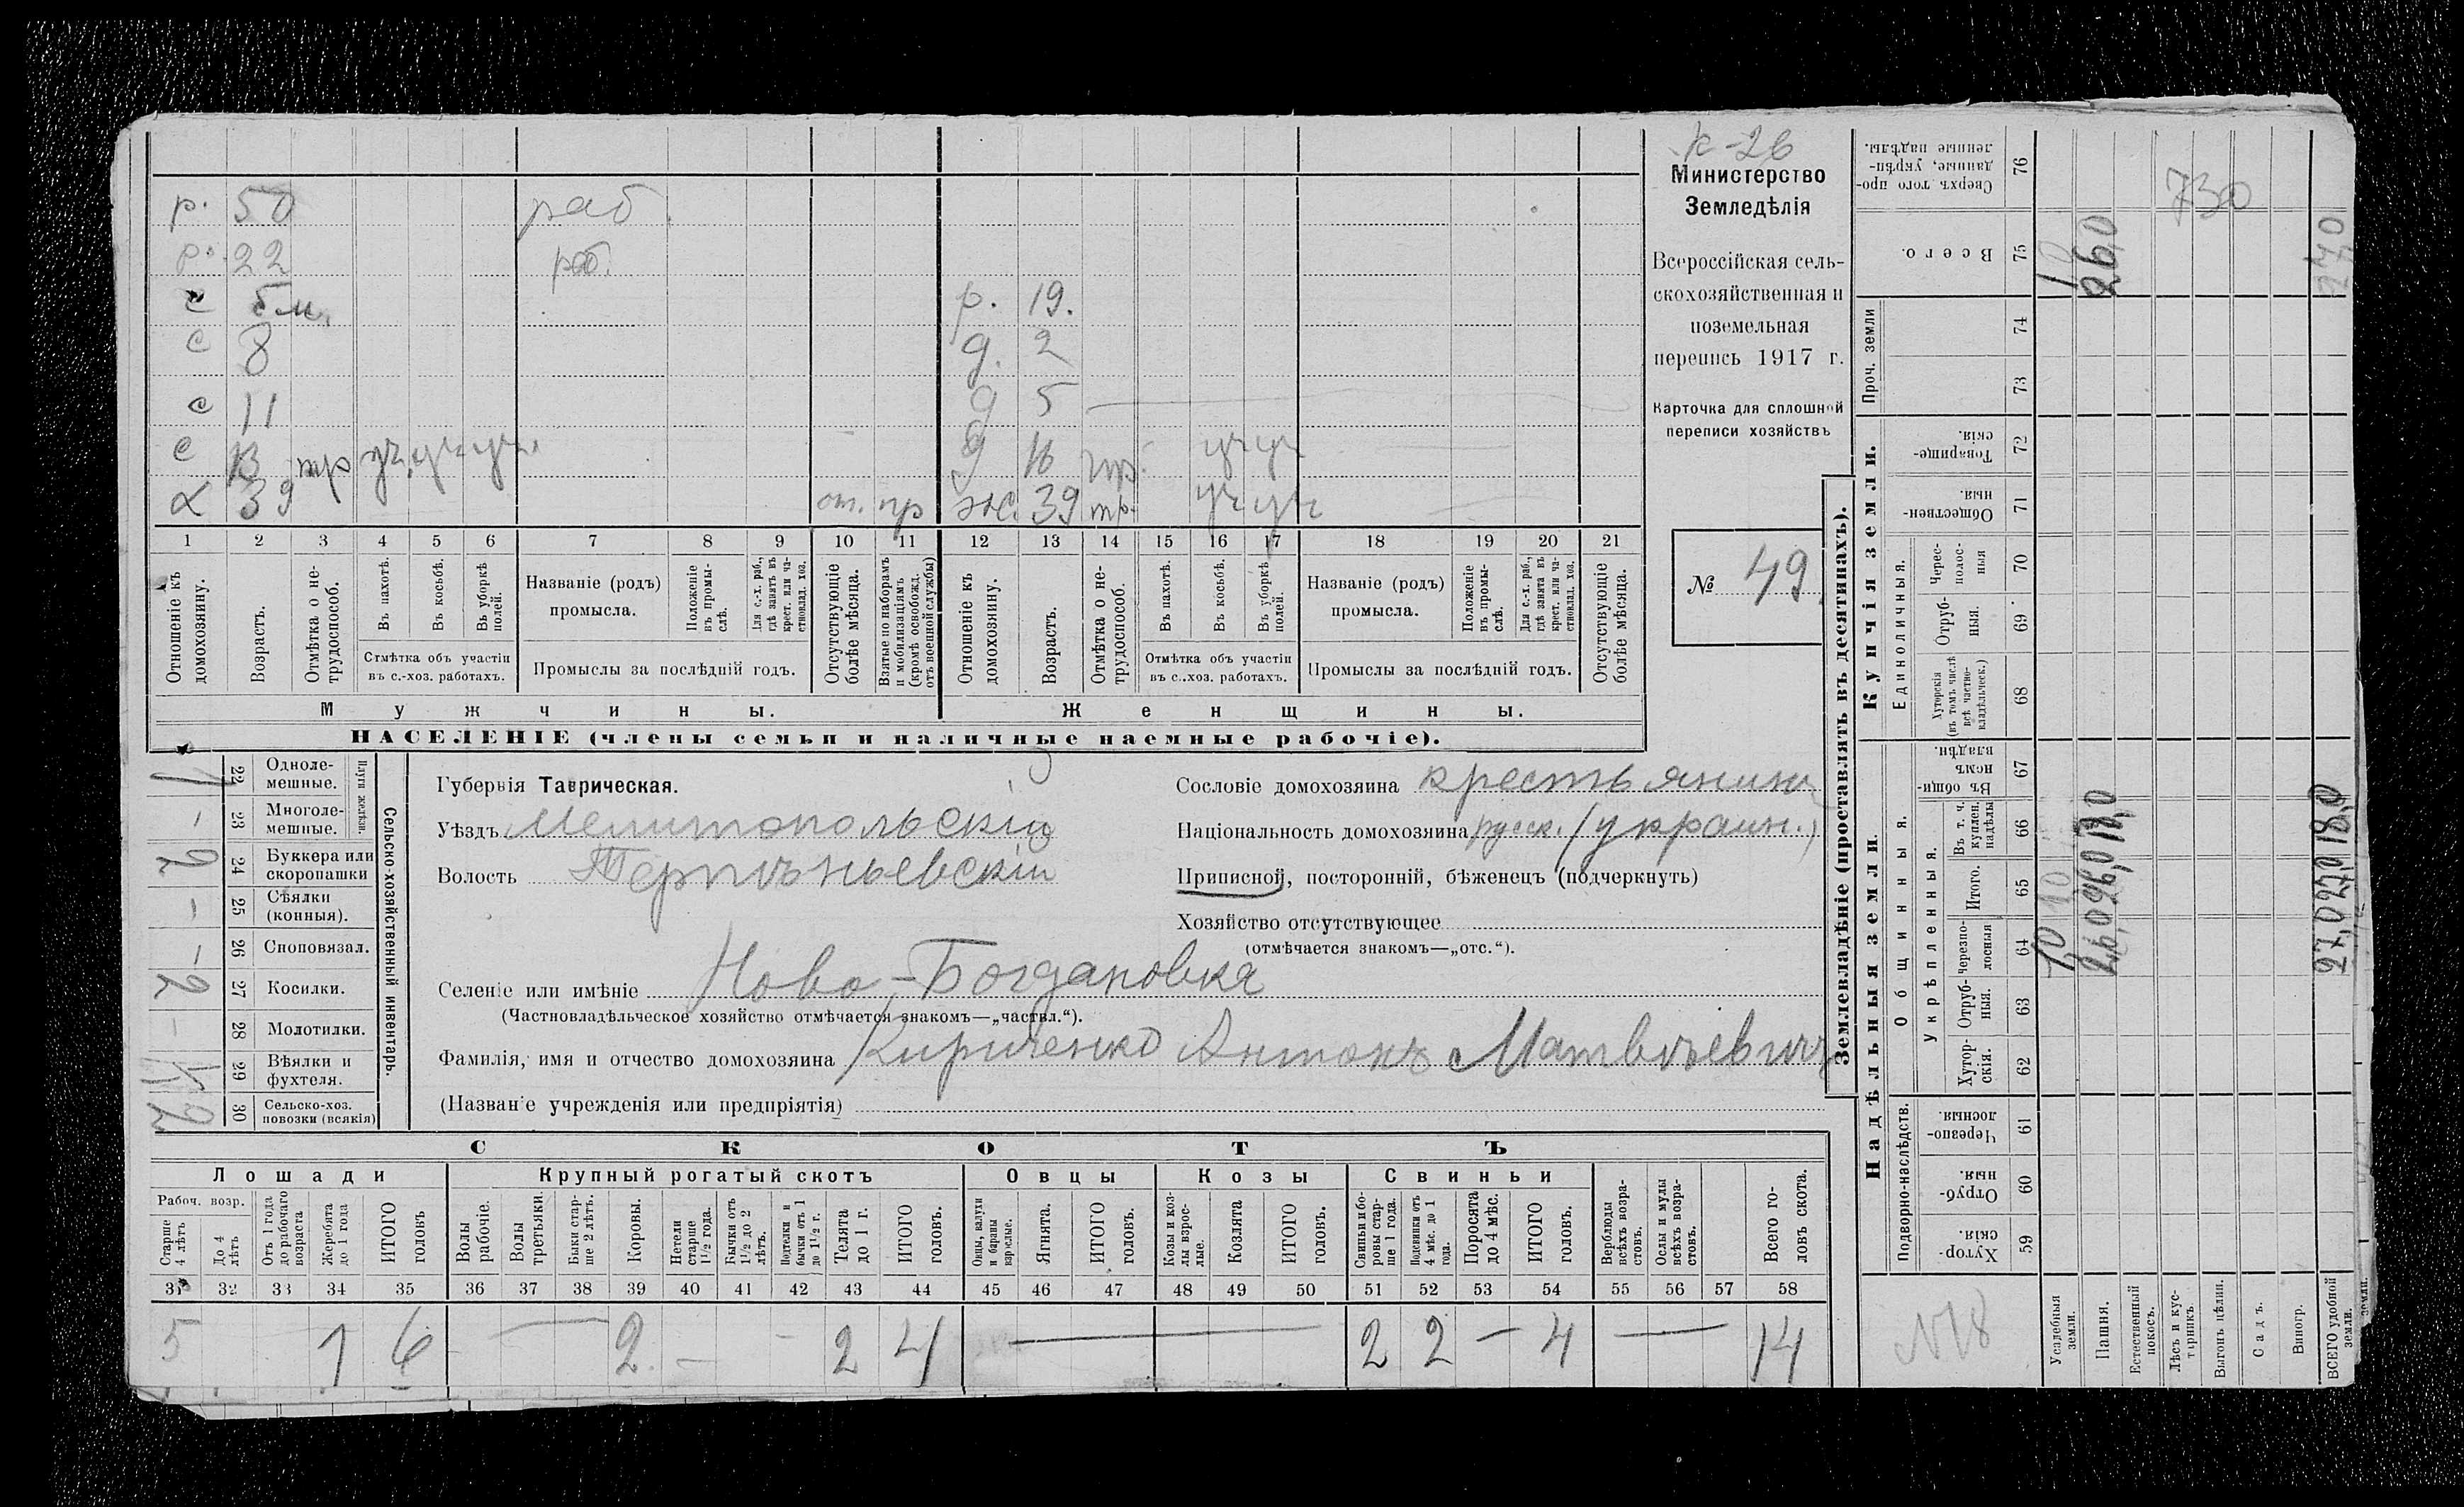 к-26
Министерство
Земледѣлія
Всероссійская сель-
скохозяйственная и
поземельная
перепись 1917 г.
Карточка для сплошной
переписи хозяйствъ
№ 49
р. 50 раб.
р. 22 раб.
с 5 м. р. 19.
с 8 д. 2
с 11 д 5
с 13 тр уч. уч уч. д 16 тр. уч уч
х 39 от. пр ж. 39 тр. уч уч
1 2 3 4 5 6 7 8 9 10 11 12 13 14 15 16 17 18 19 20 21
Отношеніе къ домохозяину.
Возрастъ.
Отмѣтка о не-трудоспособ.
Въ пахотѣ.
Въ косьбѣ.
Въ уборкѣ полей.
Отмѣтка объ участіи въ с.-хоз. работахъ.
Названіе (родъ) промысла.
Положеніе въ промы-слѣ.
Для с.-х. раб., гдѣ занятъ въ крест. или ча-стновлад. хоз.
Промыслы за послѣдній годъ.
Отсутствующіе болѣе мѣсяца.
Взятые по наборамъ и мобилизаціямъ (кромѣ освобожд. отъ военной службы)
Отношеніе къ домохозяину.
Возрастъ.
Отмѣтка о не-трудоспособ.
Въ пахотѣ.
Въ косьбѣ.
Въ уборкѣ полей.
Отмѣтка объ участіи въ с..хоз. работахъ.
Названіе (родъ) промысла.
Положеніе въ промы-слѣ.
Для с.-х. раб., гдѣ занята въ крест. или ча-стновлад. хоз.
Промыслы за послѣдній годъ.
Отсутствующіе болѣе мѣсяца.
Мужчины. Женщины.
НАСЕЛЕНІЕ (члены семьи и наличные наемные рабочіе).
Сельско-хозяйственный инвентарь.
Плуги желѣзн.
1 22 Однолемешные.
– 23 Многолемешные.
2 24 Буккера или скоропашки
– 25 Сѣялки (конныя).
– 26 Сноповязал.
2 27 Косилки.
– 28 Молотилки.
29 Вѣялки и фухтеля.
2 30 Сельско-хоз. повозки (всякія)
Губернія Таврическая.
Уѣздъ Мелитопольскій
Волость Терпѣньевскій
Сословіе домохозяина крестьянинъ
Національность домохозяина русск. (украин.)
Приписной, посторонній, бѣженецъ (подчеркнуть)
Хозяйство отсутствующее
(отмѣчается знакомъ—„отс.“).
Селеніе или имѣніе Ново-Богдановка
(Частновладѣльческое хозяйство отмѣчается знакомъ—„частвл.“).
Фамилія, имя и отчество домохозяина Кириченко Антонъ Матвѣевичъ
(Названіе учрежденія или предпріятія)
СКОТЪ
Лошади Крупный рогатый скотъ Овцы Козы Свиньи
Рабоч. возр.
Старше 4 лѣтъ
До 4 лѣтъ
Отъ 1 года до рабочаго возраста
Жеребята до 1 года
ИТОГО головъ
Волы рабочіе.
Волы третьяки.
Быки стар-ше 2 лѣтъ.
Коровы.
Нетели старше 1½ года.
Бычки отъ 1½ до 2 лѣтъ.
Подтелки и бычки отъ 1 до 1½ г.
Телята до 1 г.
ИТОГО головъ.
Овцы, валухи и бараны взрослые.
Ягнята.
ИТОГО головъ.
Козы и коз-лы взрос-лые.
Козлята
ИТОГО головъ.
Свиньи и бо-ровы стар-ше 1 года.
Подсвинки отъ 4 мѣс. до 1 года.
Поросята до 4 мѣс.
ИТОГО головъ.
Верблюды всѣхъ возра-стовъ.
Ослы и мулы всѣхъ возра-стовъ.
Всего го-ловъ скота.
31 32 33 34 35 36 37 38 39 40 41 42 43 44 45 46 47 48 49 50 51 52 53 54 55 56 57 58
5 1 6 — 2 – – 2 4 — 2 2 – 4 — 14
Землевладѣніе (проставлять въ десятинахъ).
Надѣльныя земли. Купчія земли. Проч. земли
Подворно-наслѣдств.
Общинныя.
Укрѣпленныя.
Единоличныя.
59 Хутор-скія.
60 Отруб-ныя.
61 Черезпо-лосныя.
62 Хутор-скія.
63 Отруб-ныя.
64 черезпо-лосныя
65 Итого.
66 Въ т. ч. куплен. надѣлы
67 Въ общи-номъ владѣн.
68 Хуторскія (въ томъ числѣ всѣ частно-владѣльческ.)
69 Отруб-ныя.
70 Черес-полос-ныя
71 Обществен-ныя.
72 Товарище-скія.
73
74
75 Всего.
76 Сверхъ того про-данные, укрѣп-ленные надѣлы.
Усадебныя земли. 1,0 1,0 1,0
Пашня. 26,0 26,0 18,0 26,0
Естественный покосъ.
Лѣсъ и кус-тарникъ.
Выгонъ цѣлин.
Садъ.
Виногр.
ВСЕГО удобной земли. 27,0 27,0 18,0 27,0
730
№18